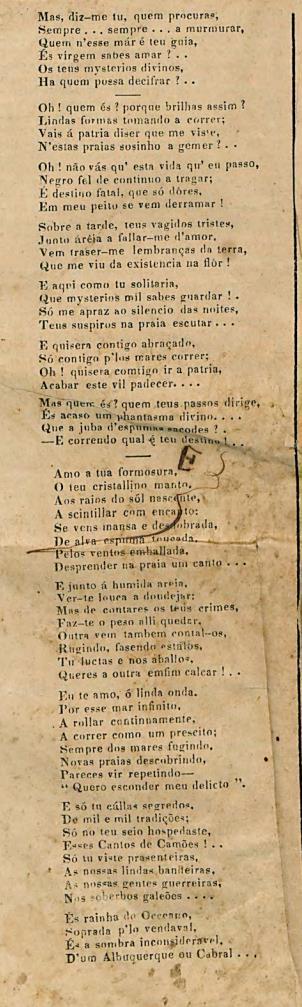 Mas, diz-me tu, quem procuras,
Sempre . . . sempre . . . a murmurar,
Quem n'esse már é teu guia,
És virgem sabes amar ? . .
Os teus mysterios divinos,
Ha quem possa decifrar ? . .
Oh ! quem és ? porque brilhas assim ?
Lindas formas tomando a correr;
Vais á patria diser que me viste,
N'estas praias sosinho a gemer ? . .
Oh ! não vás qu' esta vida qu' eu passo,
Negro fel de continuo a tragar;
É destino fatal, que só dôres,
Em meu peito se vem derramar !
Sobre a tarde, teus vagidos tristes,
Junto áréia a fallar-me d'amor,
Vem traser-me lembranças da terra,
Que me viu da existencia na flôr !
E aqui como tu solitaria,
Que mysterios mil sabes guardar ! .
Só me apraz ao silencio das noites,
Teus suspiros na praia escutar . . .
E quisera contigo abraçado,
Só contigo p'los mares correr;
Oh ! quisera comtigo ir a patria,
Acabar este vil padecer. . . .
Mas quem és? quem teus passos dirige,
És acaso um phantasma divino. . . .
Que a juba d'espumas sacodes ? .
—E correndo qual é teu destino ! . .
E
Amo a tua formosura,
O teu cristallino manto,
Aos raios do sól nascente,
A scintillar com encanto:
Se vens mansa e desdobrada,
De alva espuma toucada,
Pelos ventos emballada,
Desprender na praia um canto . . .
E junto á humida areia,
Ver-te louca a doudejar;
Mas de contares os teus crimes,
Faz-te o peso alli quedar,
Outra vem tambem contal-os,
Rugindo, fasendo estálos,
Tu luctas e nos aballos,
Queres a outra emfim calcar ! . .
Eu te amo, ó linda onda.
Por esse mar infinito,
A rollar continuamente,
A correr como um prescito;
Sempre dos mares fugindo,
Novas praias descobrindo,
Pareces vir repetindo—
" Quero esconder meu delicto ".
E só tu cállas segredos,
De mil e mil tradições;
Só no teu seio hospedaste,
Esses Cantos de Camões ! . .
Só tu viste prasenteiras,
As nossas lindas bandeiras,
As nossas gentes guerreiras,
Nos soberbos galeões . . . .
És rainha do Occeano,
Soprada p'lo vendaval,
És a sombra inconsideravel,
D'um Albuquerque ou Cabral . . .